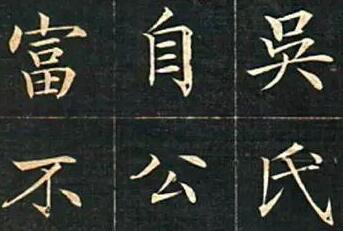 吳氏
自公
富不